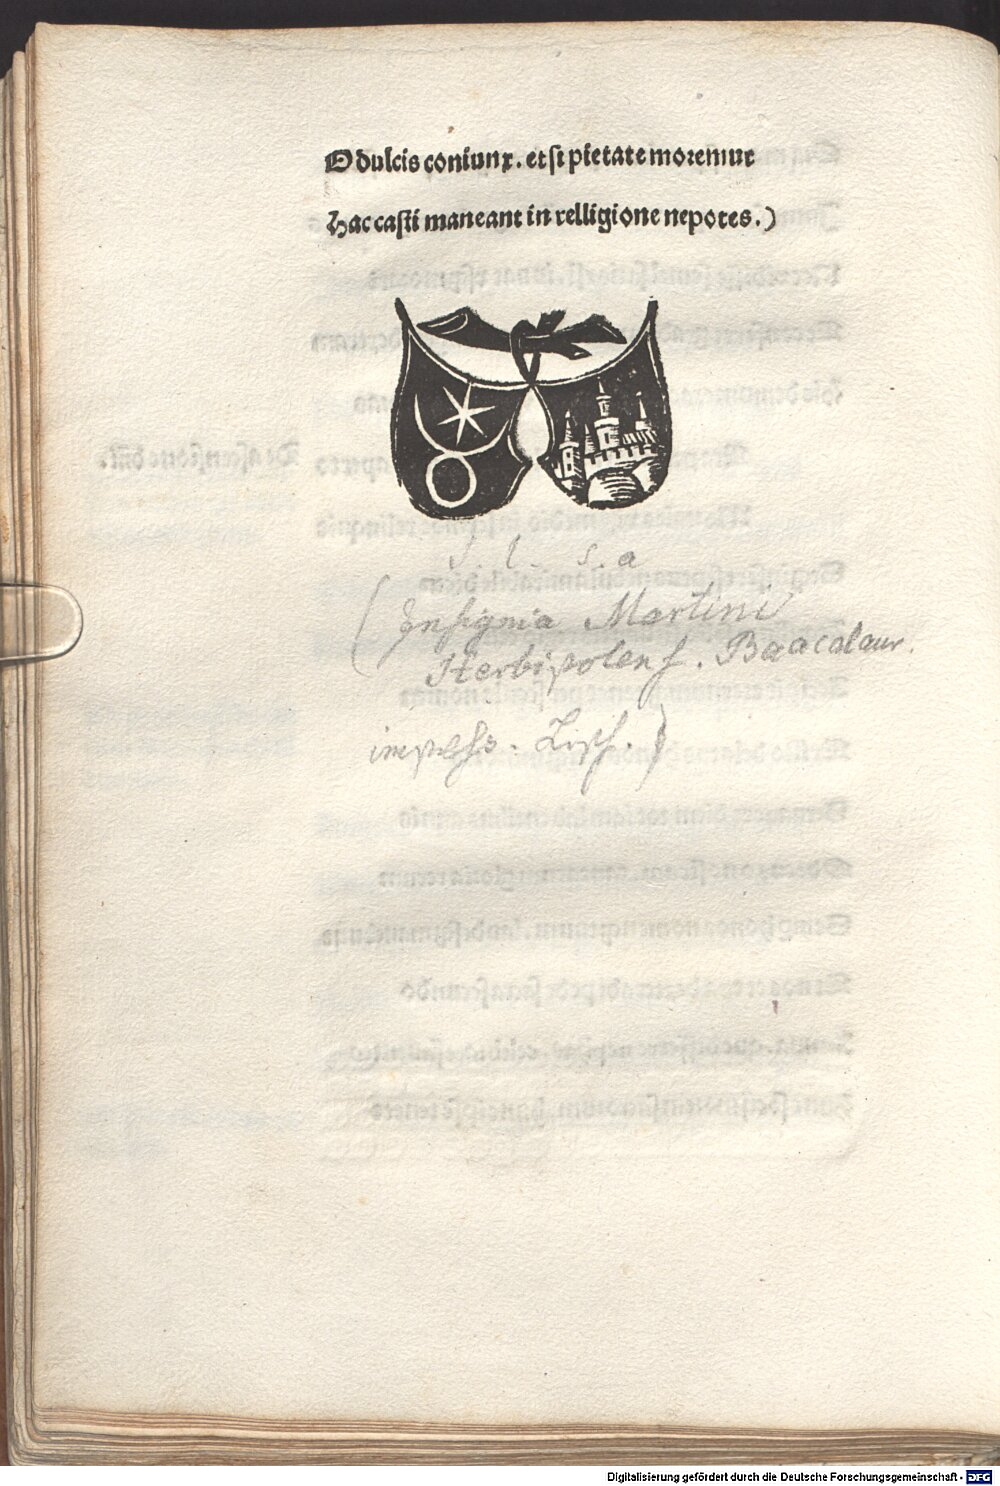 O dulcis coniunx. et si pietate moremur
Hac casti maneant in relligione nepotes.)
s. l. s. a
(Insignia Martini
Herbipolens. Baacalaur.
impress. Lips.)
Digitalisierung gefördert durch die Deutsche Forschungsgemeinschaft - DFG